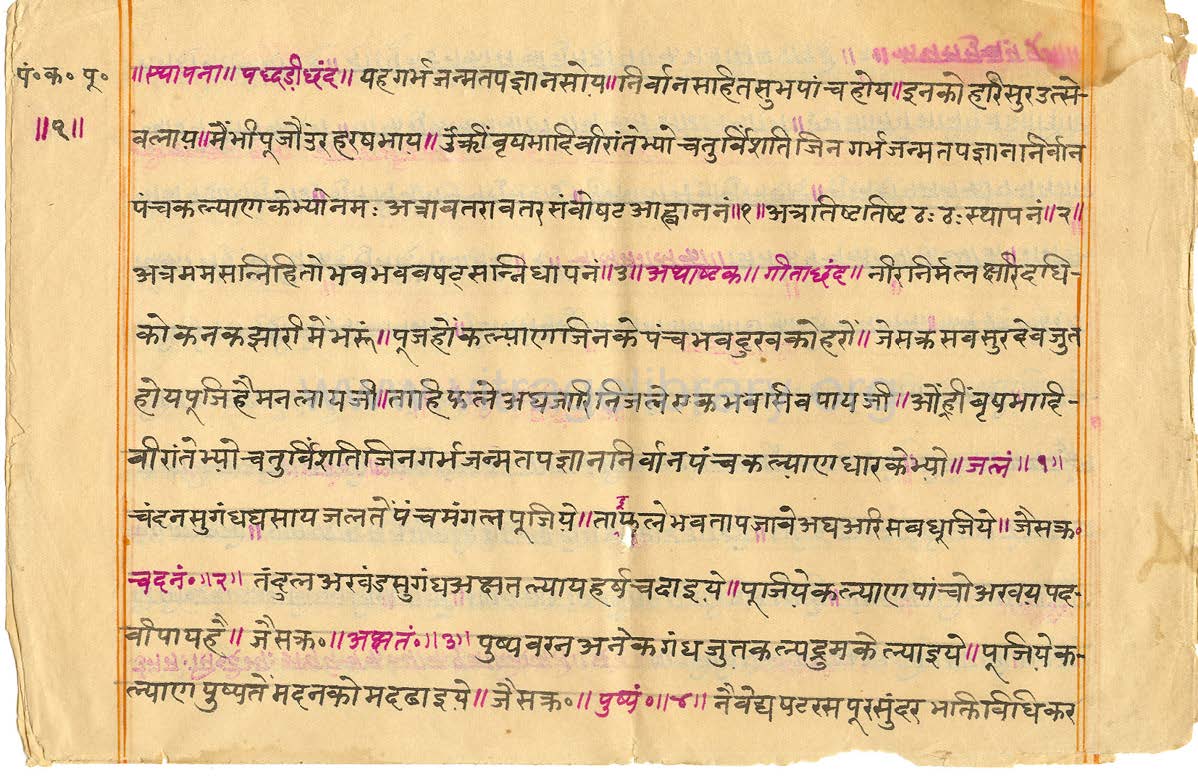 पं॰क॰पू॰ ॥स्थापना॥पद्धड़ीछंद॥ यहगर्भजन्मतपज्ञानसोय॥निर्वानसहितसुभपांचहोय॥इनकोहरिसुरउत्से-
॥१॥ वलाय॥मैंभीपूजौंउरहरषभाय॥ उँह्रींवृषभादिवीरांतेभ्योचतुर्विंशतिजिनगर्भजन्मतपज्ञाननिर्वान
पंचकल्याणकेभ्योनमः अत्रावतरावतरसंवोषटआह्वाननं॥१॥अत्रतिष्टतिष्टठःठःस्थापनं॥२॥
अत्रममसन्निहितोभवभववषट्सन्निधापनं॥३॥अथाष्टक॥ गीताछंद॥ नीरनिर्मलक्षीरदधि-
कोकनकझारीमेंभरूं॥पूजहोंकल्याणजिनकेपंचभवदुखकोहरौं॥जेसक्रसबसुरदेवजुत
होयपूजिहैमनलायजी॥ताहिफलेअघजारिनिजलेएकभवासिवपायजी॥ओंह्रींवृषभादि-
वीरांतेभ्योचतुर्विंशतिजिनगर्भजन्मतपज्ञाननिर्वानपंचकल्याणधारकेभ्यो॥जलं॥१॥
चंदनसुगंधघसायजलतेंपंचमंगलपूजिये॥ताफलेभवतापजावेअघअरिसबधूजिये॥जैसक्र॰
चंदनं॰॥२॥ तंदुलअखंडसुगंधअक्षतल्यायहर्षचढाइये॥पूजियेकल्याणपांचोअखयपद-
वीपायहै॥ जैसक्र॰॥अक्षतं॰॥३॥ पुष्पवरनअनेकगंधजुतकल्पद्रुमकेल्याइये॥पूजियेक-
ल्याणपुष्पतेंमदनकोमदढाइये॥जैसक्र॰॥पुष्पं॰॥४॥ नैवेद्यषटरसपूरसुंदरभक्तिविधिकर
www.vitragelibrary.org